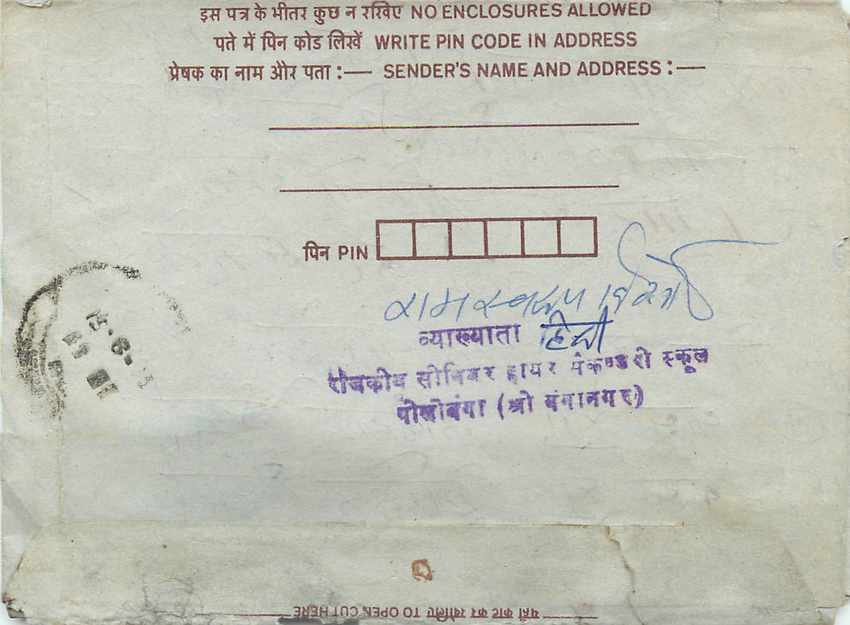 इस पत्र के भीतर कुछ न रखिए NO ENCLOSURES ALLOWED
पते में पिन कोड लिखें WRITE PIN CODE IN ADDRESS
प्रेषक का नाम और पता :— SENDER'S NAME AND ADDRESS :—
पिन PIN
रामस्वरूप
व्याख्याता हिन्दी
राजकीय सीनियर हायर सैकण्डरी स्कूल
पीलीबंगा (श्री गंगानगर)
यहाँ काट कर खोलिए TO OPEN CUT HERE